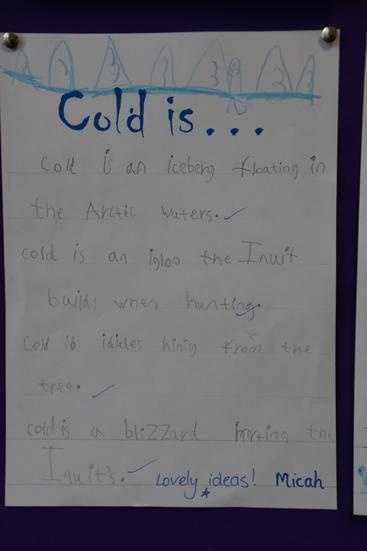 Cold is...
Cold is an iceberg floating in
the Arctic waters.
cold is an igloo the Inuit
builds when hunting.
Cold is icicles hinig from the
tree.
cold is a blizzard hirting the
Inuit's.
Lovely ideas! Micah